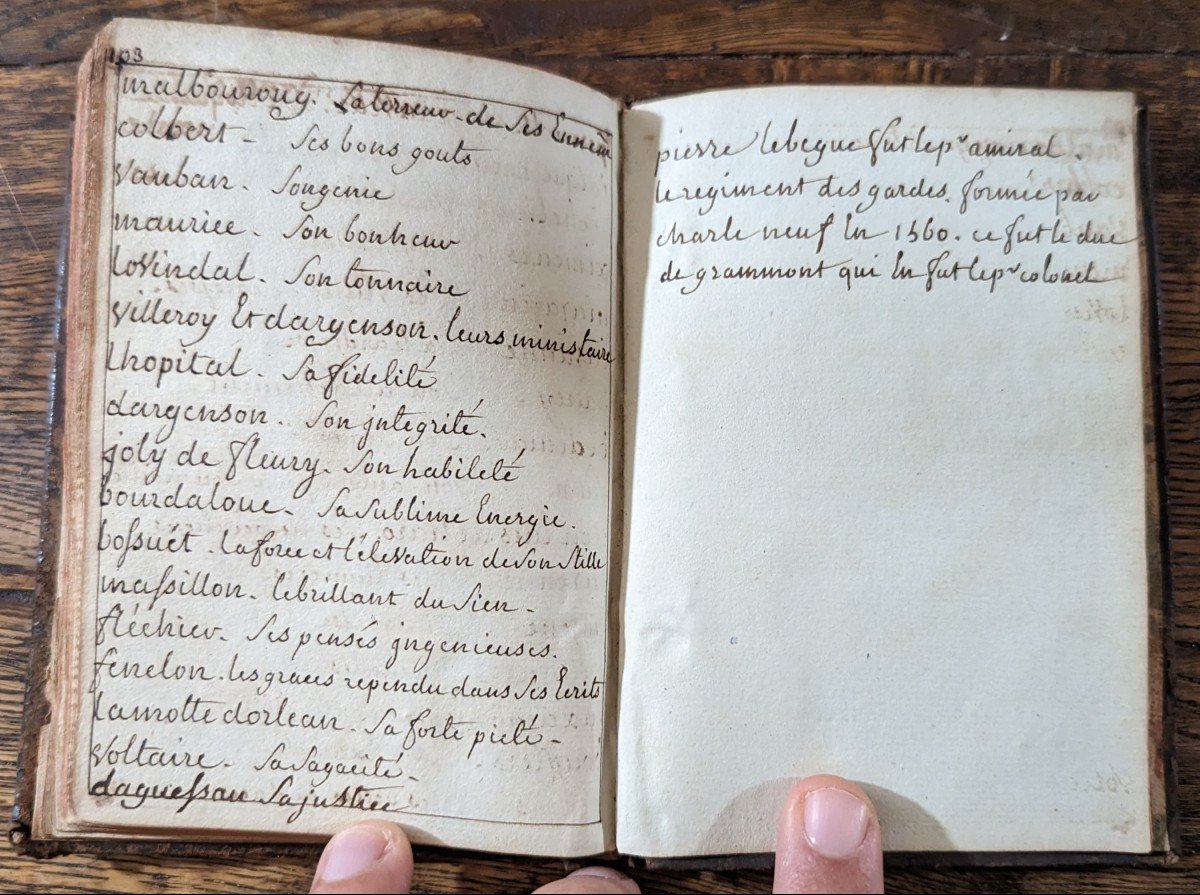 103
malbouroug. Saterreur de ses Ennem
colbert - Ses bons gouts
Vauban. Songenie
mauriee. Son bonheur
lovindal. Son tonnaire
Villeroy Et dargenson. leurs ministaire
lhopital. Sa fidelité
dargenson. Son jntegrité.
joly de fleury. Son habileté
bourdaloue. Sa Sublime Energie.
bossuét. la force et l'élevation de son Stille
massillon. le brillant du Sien -
fléchier. Ses pensés jngenieuses.
fenelon. les graces rependu dans Ses Ecrits
lamotte dorlean. Sa forte pieté -
Voltaire. Sa Sagacité.
daguessau Sa justice
pierre lebegue fut le pr amiral.
le regiment des gardes. formée par
charle neuf En 1560. ce fut le duc
de grammont qui En fut le pr colonel